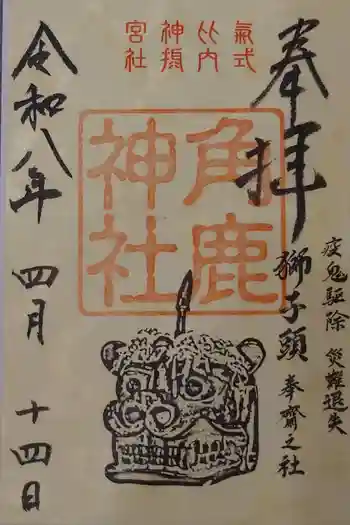 奉拝
疫鬼駆除 災難退失
獅子頭 奉齋之社
角鹿
神社
氣式
比内
神摂
宮社
令和八年 四月 十四日